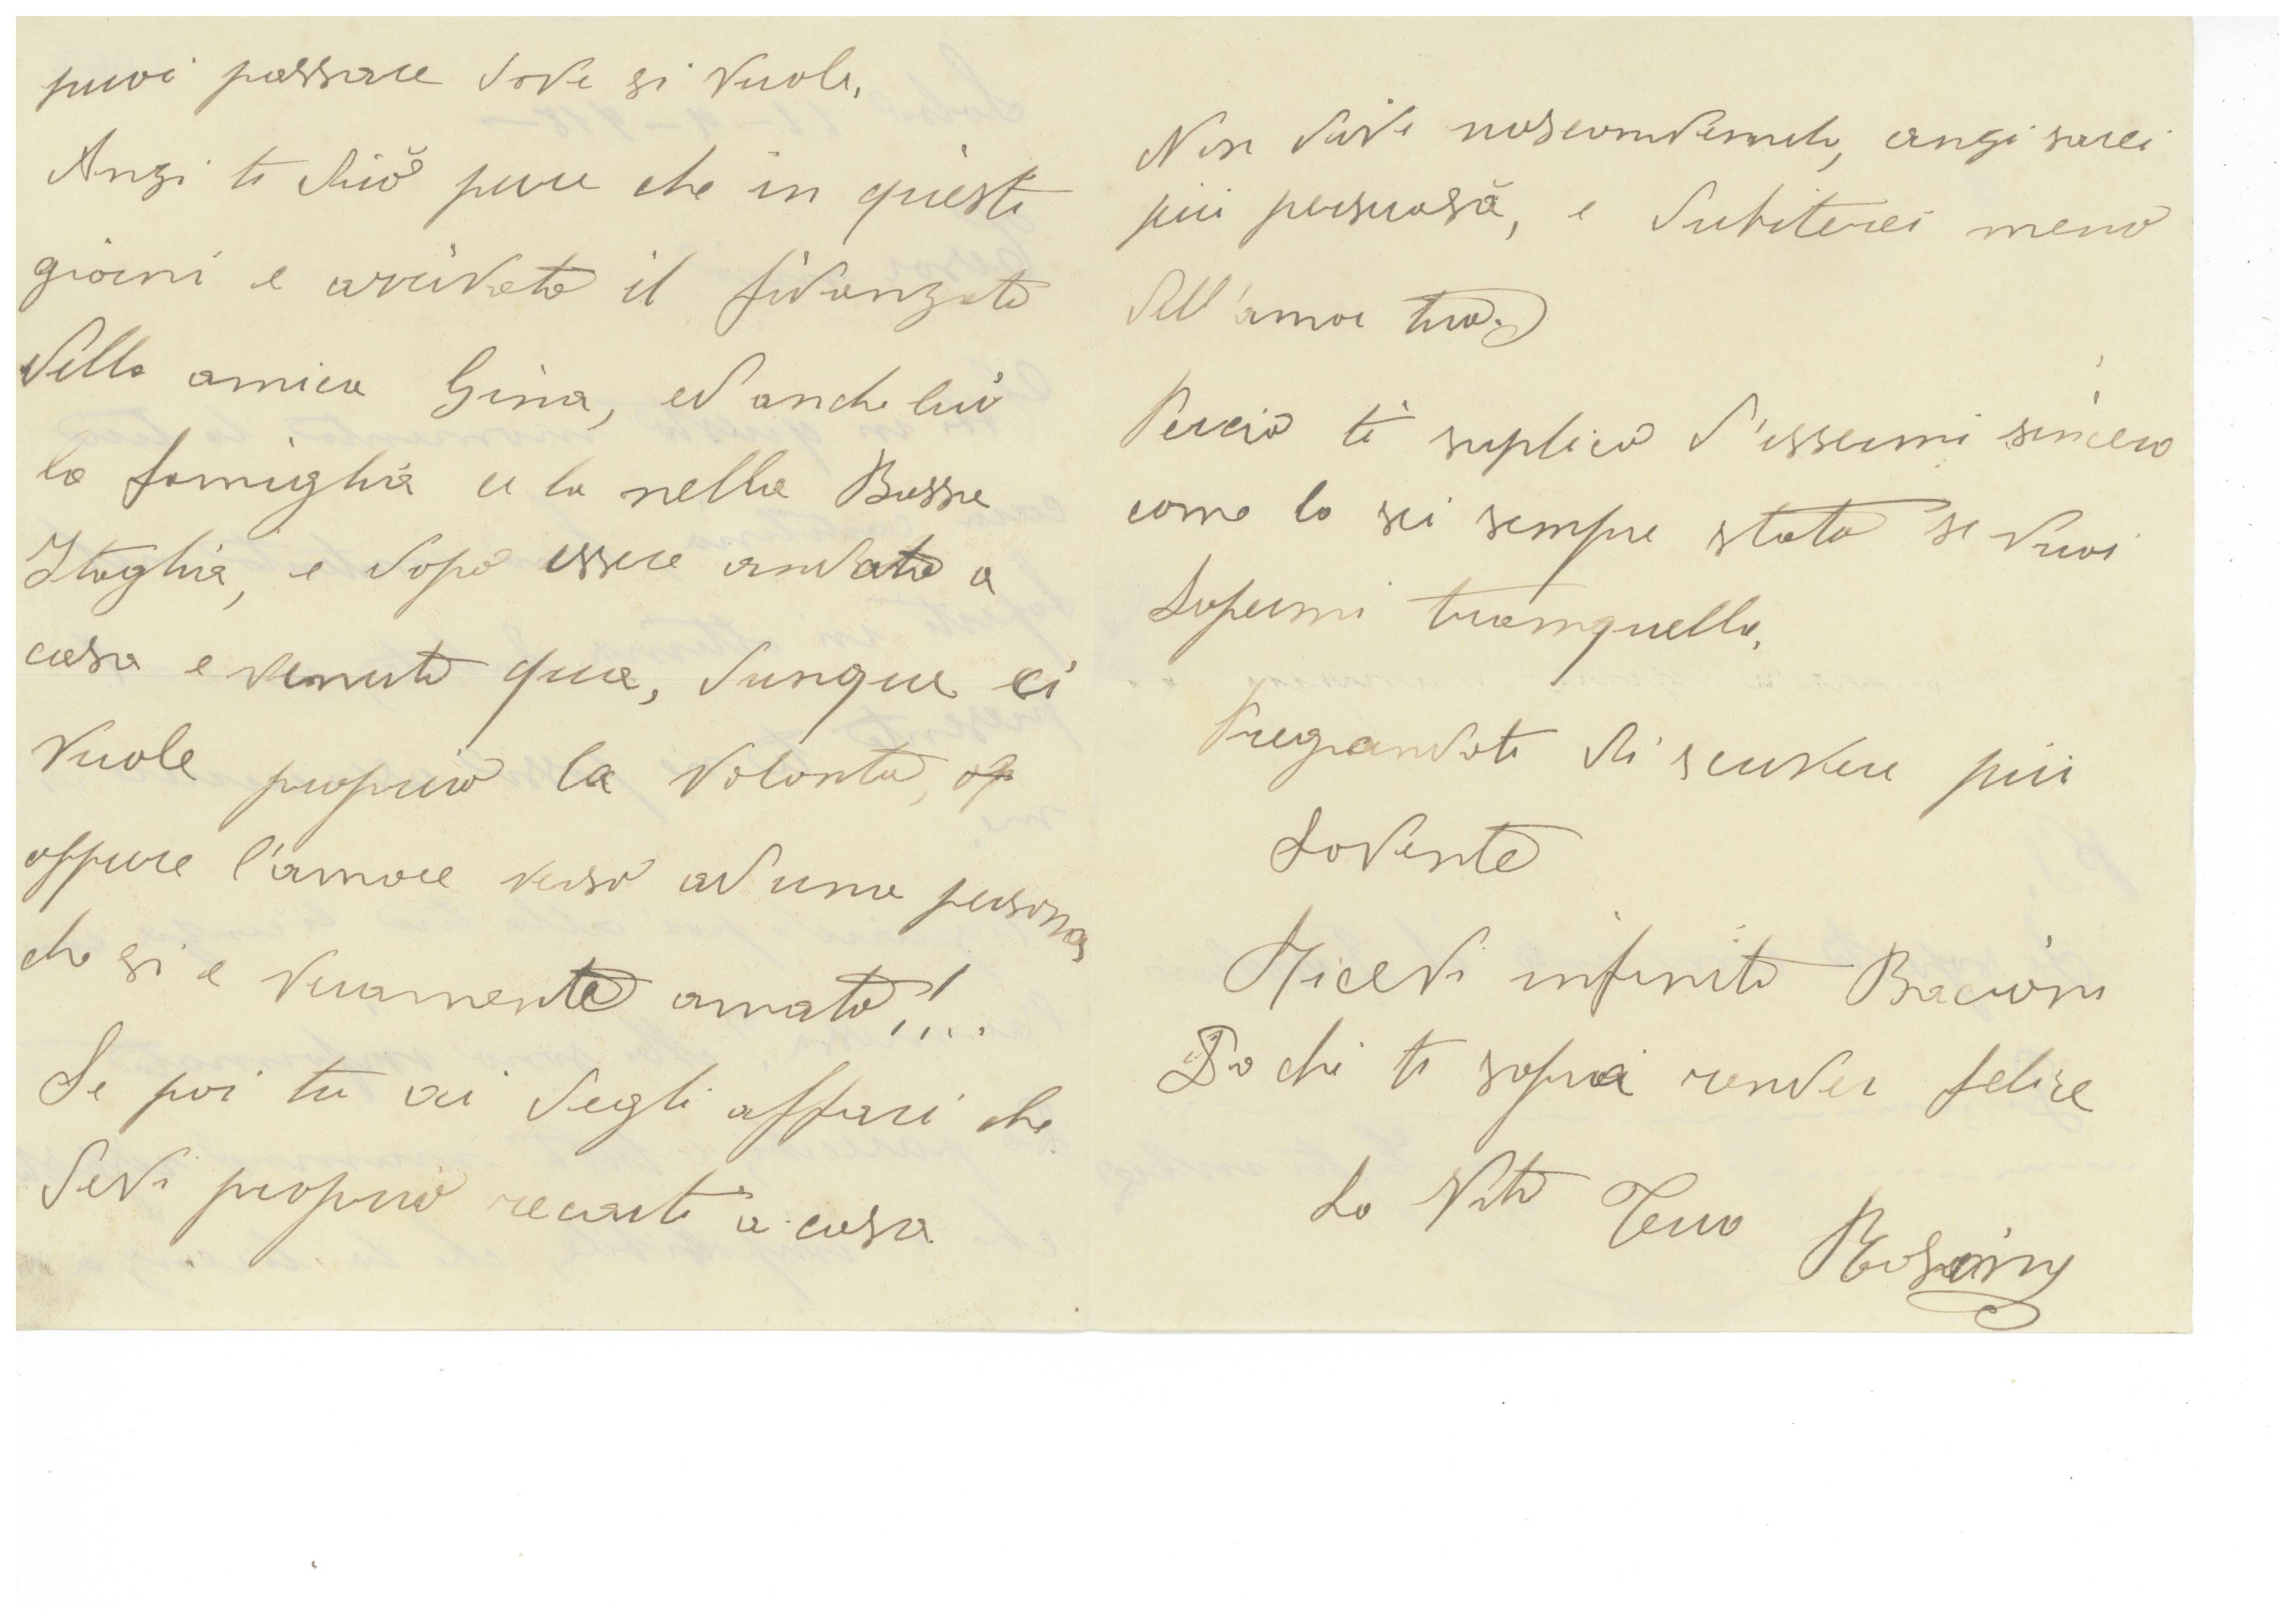 puoi passare dove si vuole.
Anzi ti dirò pure che in questi
giorni e arrivato il fidanzato
della amica Gina, ed anche lui
la famiglia ce la nella Bassa
Itaglia, e dopo essere andato a
casa e venuto qua, dunque ci
vuole proprio la volonta, op
oppure l'amore verso ad una persona
che si e veramente amato!!..
Se poi tu ai degli affari che
devi proprio recarti a casa
Non devi nascondermelo, anzi sarei
più persuasa, e dubiterei meno
dell'amor tuo.
Perciò ti suplico d'essermi sincero
come lo sei sempre stato se vuoi
sapermi tramquella.
Pregandoti di scrivere più
sovente
Ricevi infiniti Bacioni
Da chi ti saprai render felice
la vita Tua Rosina